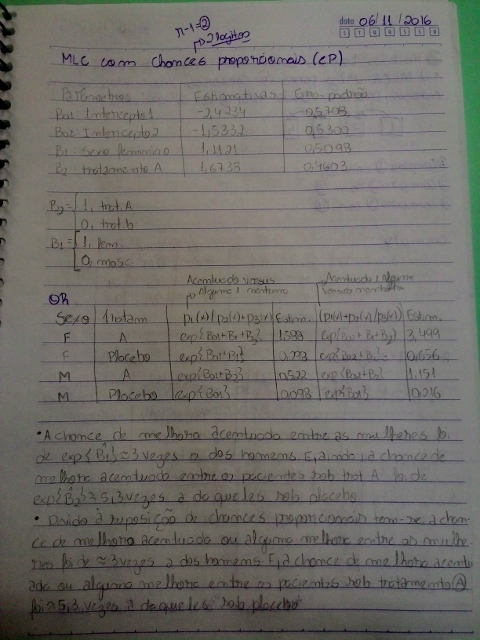 n-1=2
2 logitos
data 06/11/2016
MLC com chances proporcionais (CP)
Parâmetros Estimativas Erro-padrão
B01: Intercepto1 -2,4234
B02: Intercepto2 -1,5332 0,5302
B1: Sexo feminino 1,1121 0,5093
B2: tratamento A 1,6733 0,4603
B2= 1, trat.A
0, trat.b
B1= 1, fem
0, masc
Acentuado versus Acentuado/Alguma
Alguma/nenhuma versus nenhuma
OR
Sexo tratam p1(x)/p2(x)+p3(x) Estim. (p1(x)+p2(x)/p3(x) Estim.
F A exp{B01+B1+B2} 1,599 exp{B02+B1+B2} 3,499
F Placebo exp{B01+B1} exp{B02+B1} 0,656
M A exp{B01+B2} 0,522 exp{B02+B2} 1,151
M Placebo exp{B01} 0,098 exp{B01} 0,216
• A chance de melhora acentuada entre as mulheres foi
de exp{B̂1} ≈ 3 vezes a dos homens. E, ainda, a chance de
melhora acentuada entre os pacientes sob trat A foi de
exp{B̂2} ≈ 5,3 vezes a daqueles sob placebo
• Devido à suposição de chances proporcionais tem-se a chan-
ce de melhora acentuada ou alguma melhora entre as mulhe-
res foi de ≈ 3 vezes a dos homens. E, a chance de melhora acentu
ada ou alguma melhora entre os pacientes sob tratamento A
foi ≈ 5,3 vezes a daqueles sob placebo